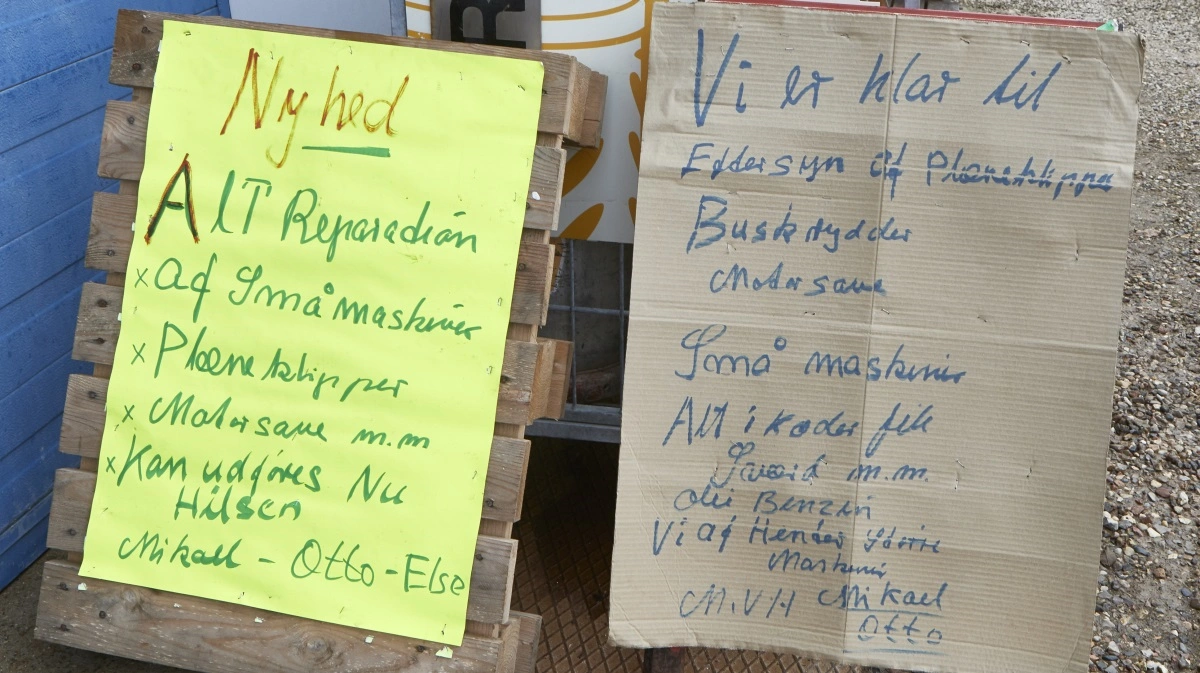 Nyhed
Alt Reparadián
x af Småmaskiner
x Plæneklipper
x Motorsave m.m
x Kan udgöres Nu
Hilsen
Mikael - Otto - Else
R
Vi er klar til
Eftersyn af Plæneklippe
Buskrydder
Motorsave
Små maskiner
Alt i kæder file
Sværd m.m.
Oli Benzin
Vi af Henter större
Maskiner
M.V.H Mikael
Otto